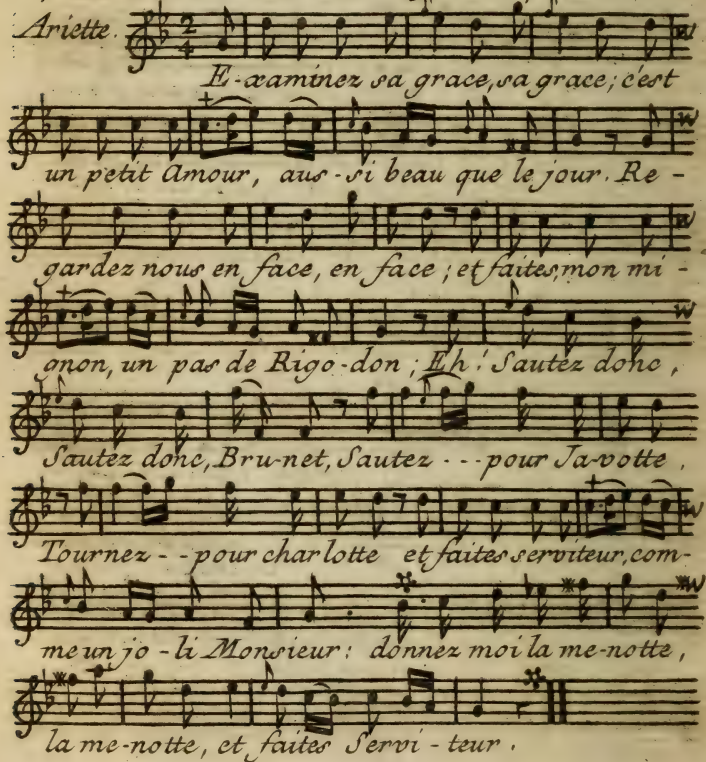 Ariette.
E-xaminez sa grace, sa grace; c'est
un petit Amour, aus-si beau que le jour. Re-
gardez nous en face, en face; et faites, mon mi-
gnon, un pas de Rigo-don; Eh! Sautez donc,
Sautez donc, Bru-net, Sautez --- pour Ja-votte,
Tournez -- pour charlotte et faites serviteur, com-
me un jo-li Monsieur: donnez moi la me-notte,
la me-notte, et faites Servi-teur.